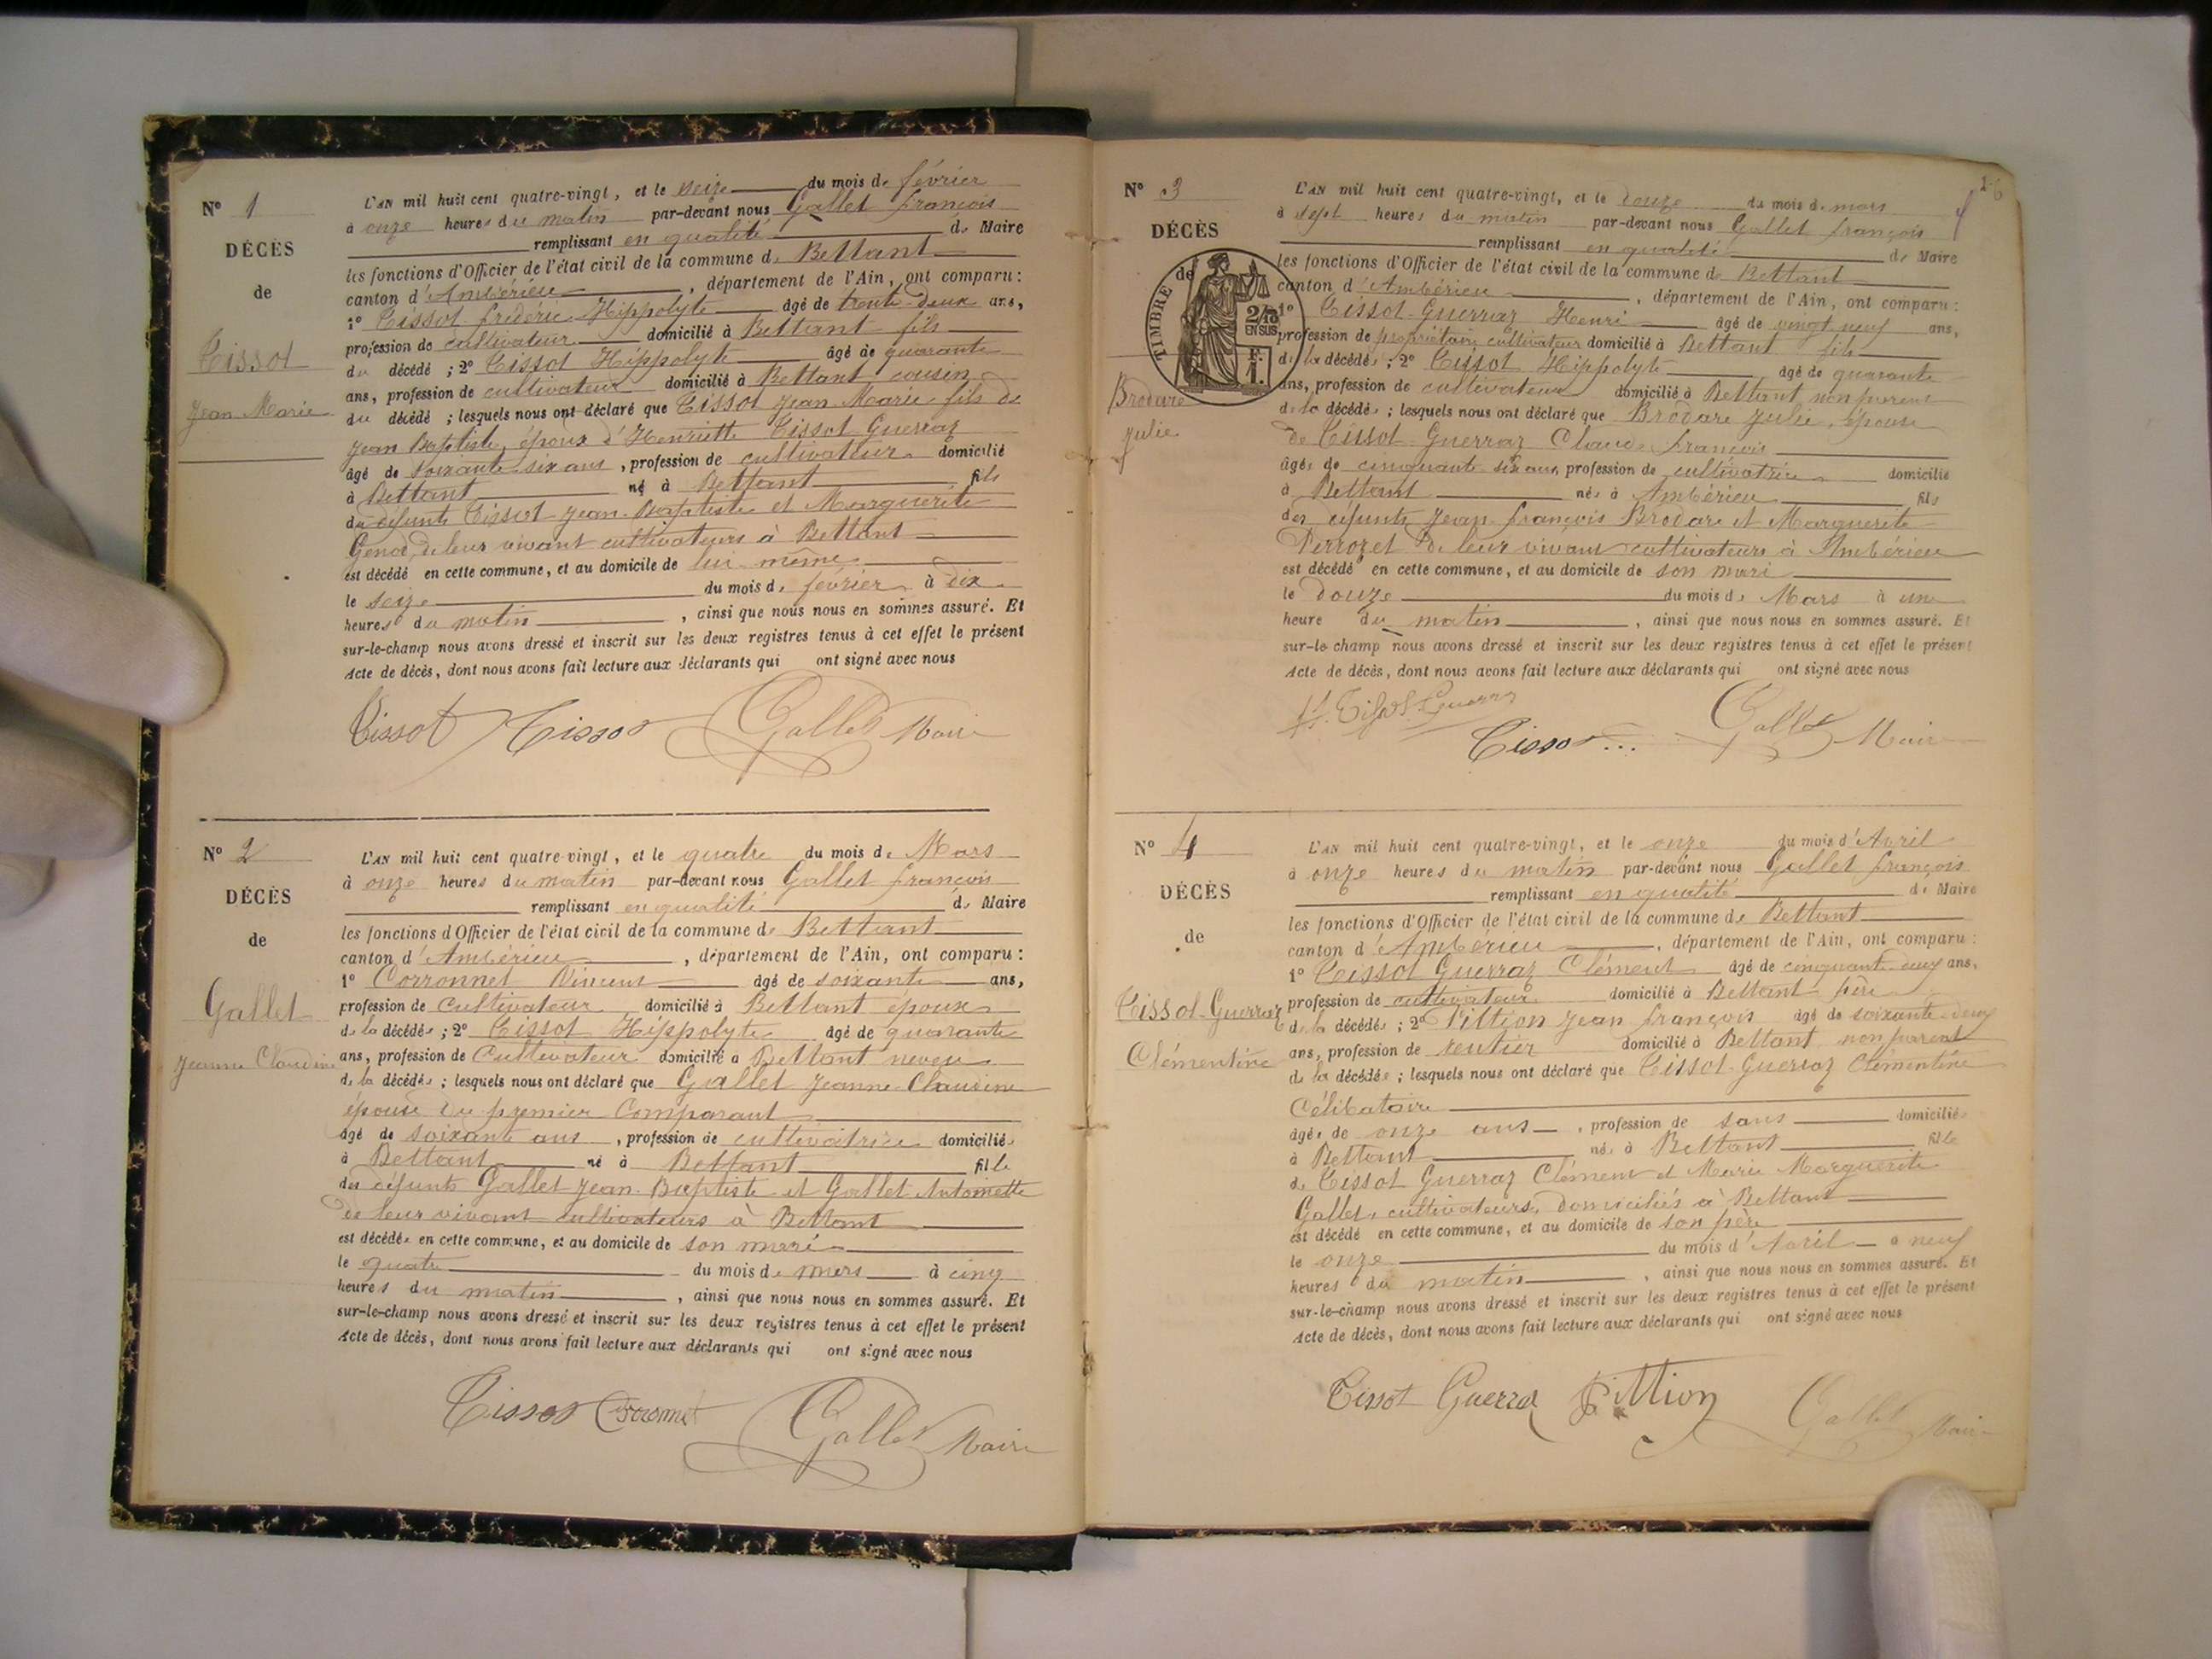 N° 1
DÉCÈS
de
Tissot
Jean Marie
L'AN mil huit cent quatre-vingt, et le seize du mois de février
à onze heures du matin par-devant nous Gallet françois
remplissant en qualité de Maire
les fonctions d'Officier de l'état civil de la commune de Bettant
canton d'Ambérieu, département de l'Ain, ont comparu :
1° Tissot fréderic Hippolyte âgé de trente-deux ans,
profession de cultivateur domicilié à Bettant fils
du décédé ; 2° Tissot Hippolyte âgé de quarante
ans, profession de cultivateur domicilié à Bettant cousin
du décédé ; lesquels nous ont déclaré que Tissot Jean Marie fils de
Jean Baptiste, époux d'Henriette Tissot Guerraz
âgé de soixante six ans, profession de cultivateur domicilié
à Bettant né à Bettant fils
du défunts Tissot Jean-Baptiste et Marguerite
Genod, de leur vivant cultivateurs à Bettant
est décédé en cette commune, et au domicile de lui-même
le seize du mois de février à dix
heures du matin, ainsi que nous nous en sommes assuré. Et
sur-le-champ nous avons dressé et inscrit sur les deux registres tenus à cet effet le présent
Acte de décès, dont nous avons fait lecture aux déclarants qui ont signé avec nous
Tissot Tissot Gallet Maire
N° 2
DÉCÈS
de
Gallet
Jeanne Claudine
L'AN mil huit cent quatre-vingt, et le quatre du mois de Mars
à onze heures du matin par-devant nous Gallet françois
remplissant en qualité de Maire
les fonctions d'Officier de l'état civil de la commune de Bettant
canton d'Ambérieu, département de l'Ain, ont comparu :
1° Corronnet Vincent âgé de soixante ans,
profession de cultivateur domicilié à Bettant époux
de la décédée ; 2° Tissot Hippolyte âgé de quarante
ans, profession de Cultivateur domicilié à Bettant neveu
de la décédée ; lesquels nous ont déclaré que Gallet Jeanne-Claudine
épouse du premier Comparant
âgé de soixante ans, profession de cultivatrice domiciliée
à Bettant né à Bettant fille
des défunts Gallet Jean-Baptiste et Gallet Antoinette
de leur vivant cultivateurs à Bettant
est décédée en cette commune, et au domicile de son mari
le quatre du mois de mars à cinq
heures du matin, ainsi que nous nous en sommes assuré. Et
sur-le-champ nous avons dressé et inscrit sur les deux registres tenus à cet effet le présent
Acte de décès, dont nous avons fait lecture aux déclarants qui ont signé avec nous
Tissot Corronnet Gallet Maire
N° 3
DÉCÈS
de
TIMBRE
2/10
EN SUS
F.
1.
Brodare
Julie
L'AN mil huit cent quatre-vingt, et le douze du mois de mars
à sept heures du matin par-devant nous Gallet françois
remplissant en qualité de Maire
les fonctions d'Officier de l'état civil de la commune de Bettant
canton d'Ambérieu, département de l'Ain, ont comparu :
1° Tissot-Guerraz Henri âgé de vingt neuf ans,
profession de propriétaire cultivateur domicilié à Bettant fils
de la décédée ; 2° Tissot Hippolyte âgé de quarante
ans, profession de cultivateur domicilié à Bettant non parent
de la décédée ; lesquels nous ont déclaré que Brodare Julie, épouse
de Tissot-Guerraz Claude françois
âgée de cinquante six ans, profession de cultivatrice domicilié
à Bettant née à Ambérieu fils
des défunts Jean-françois Brodare et Marguerite
Perrozet de leur vivant cultivateurs à Ambérieu
est décédé en cette commune, et au domicile de son mari
le douze du mois de Mars à une
heure du matin, ainsi que nous nous en sommes assuré. Et
sur-le-champ nous avons dressé et inscrit sur les deux registres tenus à cet effet le présent
Acte de décès, dont nous avons fait lecture aux déclarants qui ont signé avec nous
Tissot Gallet Maire
N° 4
DÉCÈS
de
Tissot-Guerraz
Clémentine
L'AN mil huit cent quatre-vingt, et le onze du mois d'Avril
à onze heures du matin par-devant nous Gallet françois
remplissant en qualité de Maire
les fonctions d'Officier de l'état civil de la commune de Bettant
canton d'Ambérieu, département de l'Ain, ont comparu :
1° Tissot Guerraz Clément âgé de cinquante-deux ans,
profession de cultivateur domicilié à Bettant père
de la décédée ; 2° Pittion Jean françois âgé de soixante-deux
ans, profession de rentier domicilié à Bettant non parent
de la décédée ; lesquels nous ont déclaré que Tissot-Guerraz Clémentine
Célibataire
âgée de onze ans, profession de sans domiciliée
à Bettant née à Bettant fille
de Tissot Guerraz Clément et Marie Marguerite
Gallet, cultivateurs, domiciliés à Bettant
est décédé en cette commune, et au domicile de son père
le onze du mois d'Avril à neuf
heures du matin, ainsi que nous nous en sommes assuré. Et
sur-le-champ nous avons dressé et inscrit sur les deux registres tenus à cet effet le présent
Acte de décès, dont nous avons fait lecture aux déclarants qui ont signé avec nous
Tissot Guerraz Pittion Gallet Maire